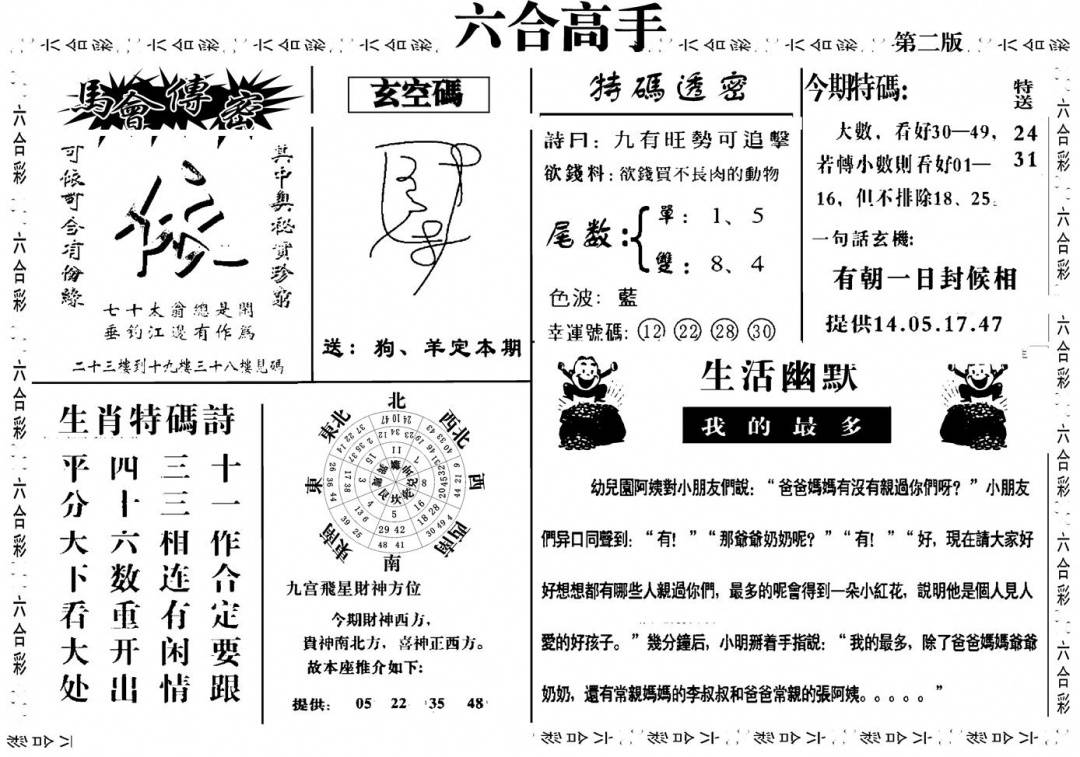 六合高手
第二版
馬會傳密
可依可含有份緣
其中奧秘實珍窮
七十太翁總是閑
垂釣江邊有作爲
二十三樓到十九樓三十八樓見碼
玄空碼
送：狗、羊定本期
特碼透密
詩曰：九有旺勢可追擊
欲錢料：欲錢買不長肉的動物
尾数：
單：1、5
雙：8、4
色波：藍
幸運號碼：12 22 28 30
今期特碼：
特送
24
31
大數，看好30—49，
若轉小數則看好01—
16，但不排除18、25。
一句話玄機：
有朝一日封候相
提供14.05.17.47
生肖特碼詩
十一作合定要跟
三三相连有闲情
四十六数重开出
平分大下看大处
北
西北
西
西南
南
東南
東
東北
九宫飛星財神方位
今期財神西方，
貴神南北方，喜神正西方。
故本座推介如下：
提供： 05 22 35 48
生活幽默
我的最多
幼兒園阿姨對小朋友們說：“爸爸媽媽有沒有親過你們呀？”小朋友
們异口同聲到：“有！”“那爺爺奶奶呢？”“有！”“好，現在請大家好
好想想都有哪些人親過你們，最多的呢會得到一朵小紅花，說明他是個人見人
愛的好孩子。”幾分鐘后，小明掰着手指說：“我的最多，除了爸爸媽媽爺爺
奶奶，還有常親媽媽的李叔叔和爸爸常親的張阿姨。。。。。”
六合彩 六合彩 六合彩 六合彩 六合彩